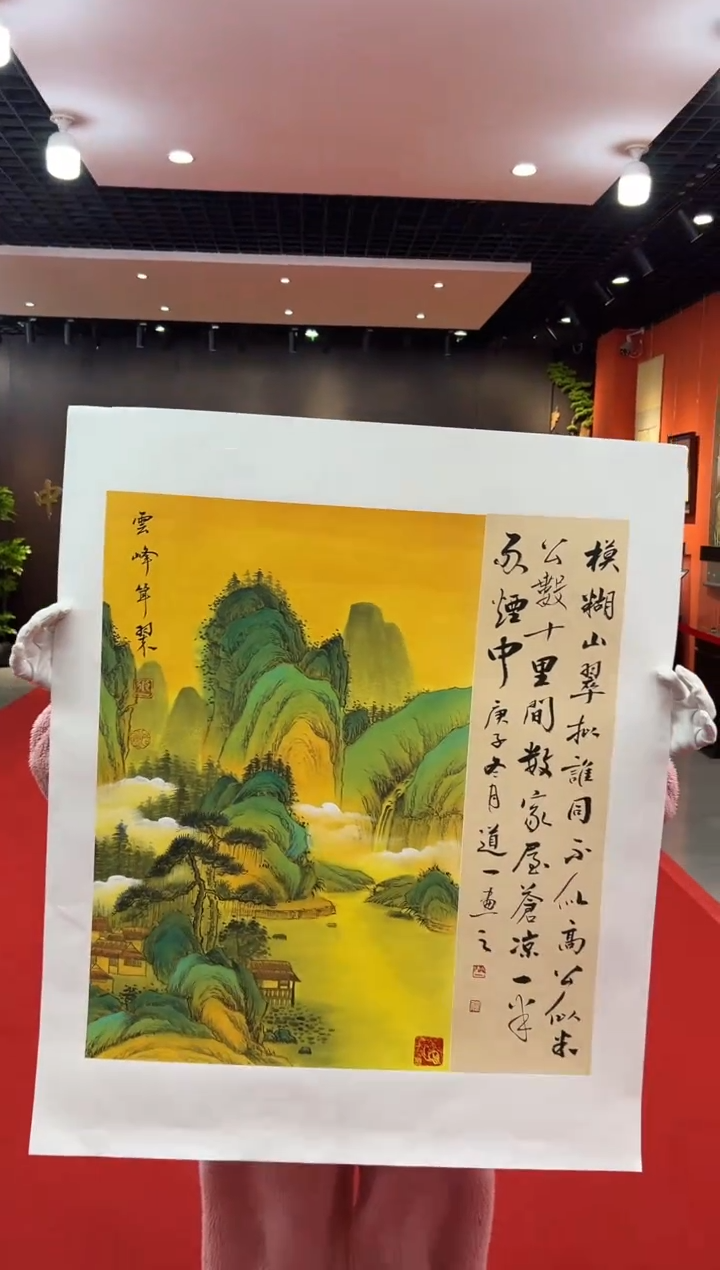 模糊山翠拟誰同不似高公似米
公數十里間数家屋蒼涼一半
煙中
庚子冬月道一畫之
雲峰耸翠
中